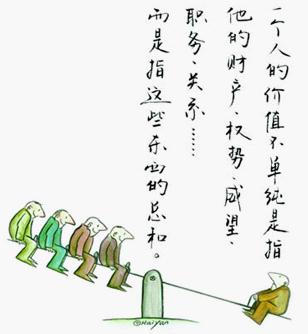 一个人的价值不单纯是指
他的财产、权势、威望、
职务、关系……
而是指这些东西的总和。
©Haiyan